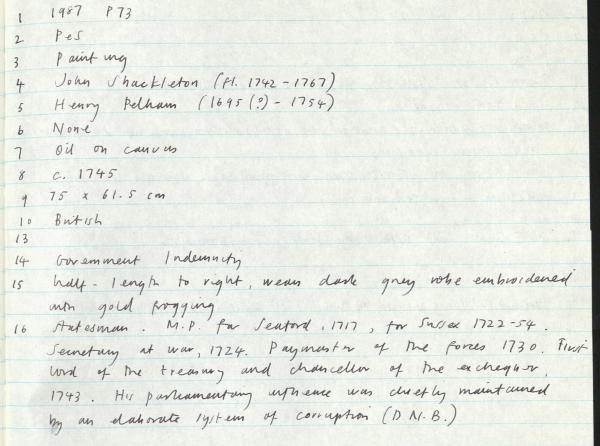 1 1987 P73
2 PeS
3 Painting
4 John Shackleton (fl. 1742-1767)
5 Henry Pelham (1695(?) - 1754)
6 None
7 Oil on canvas
8 c. 1745
9 75 x 61.5 cm
10 British
13
14 Government Indemnity
15 half-length to right, wears dark grey robe embroidered
with gold frogging
16 Statesman. M.P. for Seaford, 1717, for Sussex 1722-54.
Secretary at war, 1724. Paymaster of the forces 1730. First
lord of the treasury and chancellor of the exchequer,
1743. His parliamentary influence was chiefly maintained
by an elaborate system of corruption (D.N.B.)